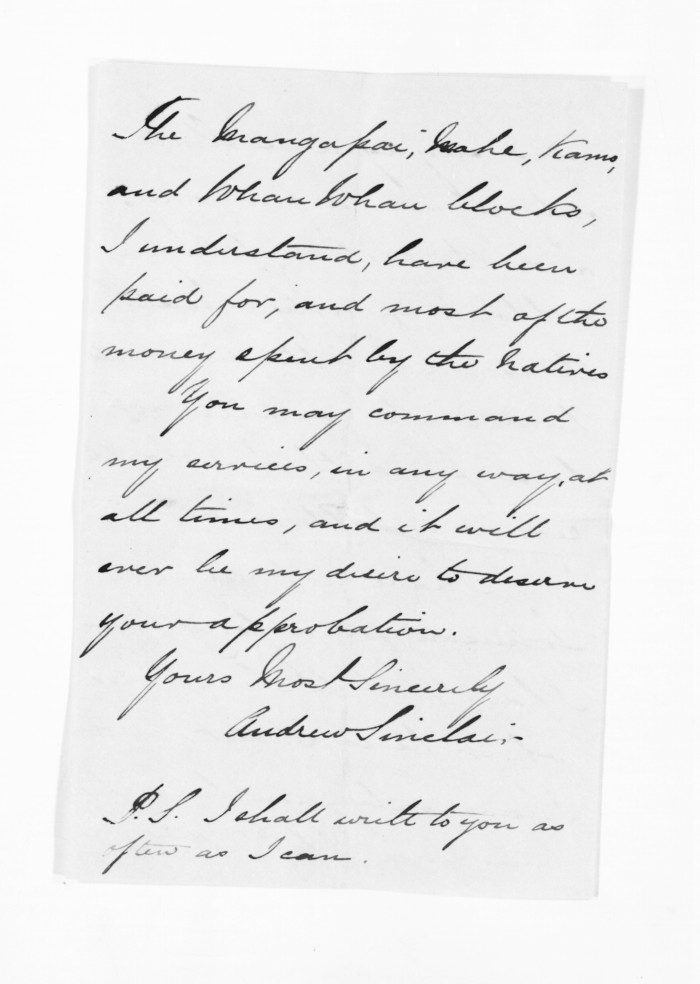 The Mangapai, Mahe, Kamo,
and Whau Whau blocks,
I understand, have been
paid for, and most of the
money spent by the Natives
You may command
my services, in any way, at
all times, and it will
ever be my desire to deserve
your approbation.
Yours Most Sincerely
Andrew Sinclair
P.S. I shall write to you as
often as I can.